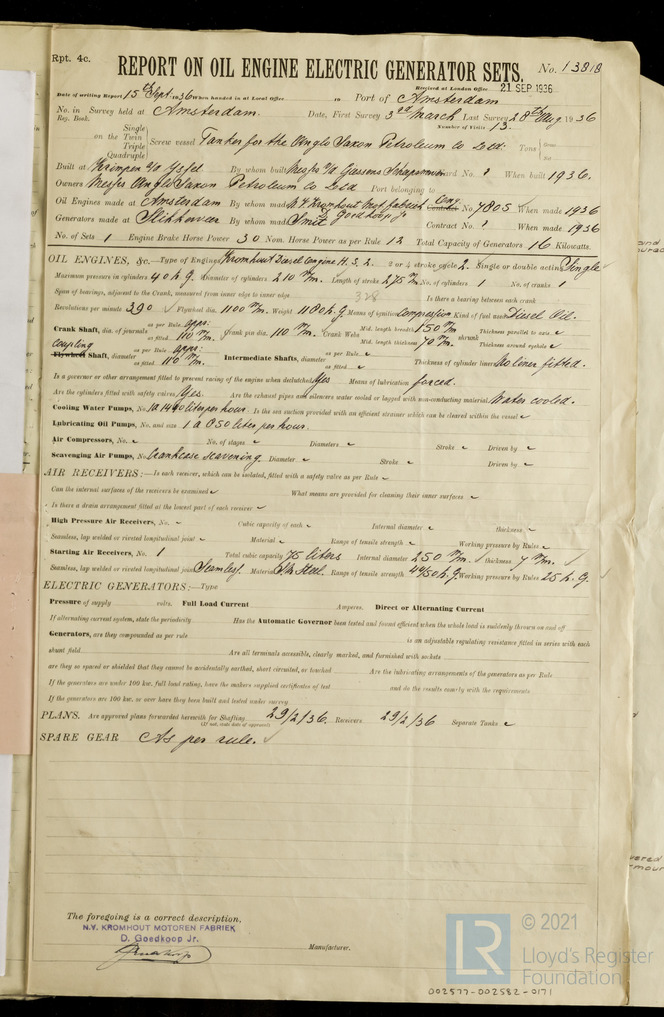 Rpt. 4c.
REPORT ON OIL ENGINE ELECTRIC GENERATOR SETS. No. 13818
Received at London Office 21 SEP 1936
Date of writing Report 15th Sept. 1936 When handed in at Local Office 19 Port of Amsterdam
No. in Survey held at Amsterdam. Date, First Survey 3rd March Last Survey 28th Aug. 1936
Reg. Book. Number of Visits 13.
Single
on the Twin
Triple
Quadruple
Screw vessel Tanker for the Anglo Saxon Petroleum Co Ltd. Tons
Built at Krimpen a/d Ysel By whom built Messrs Yard No. ? When built 1936.
Owners Messrs Anglo Saxon Petroleum Co Ltd Port belonging to
Oil Engines made at Amsterdam By whom made N.V. Kromhout Mot. fabriek Eng. No. 7805 When made 1936
D. Goedkoop Jr
Generators made at Slikkerveer By whom made Smit Contract No. ? When made 1936
No. of Sets 1 Engine Brake Horse Power 30 Nom. Horse Power as per Rule 12 Total Capacity of Generators 16 Kilowatts.
OIL ENGINES, &c.—Type of Engines Kromhout Diesel engine H.S.2. 2 or 4 stroke cycle 2. Single or double acting Single
Maximum pressure in cylinders 40 k.g. Diameter of cylinders 210 m/m. Length of stroke 275 m/m. No. of cylinders 1 No. of cranks 1
Span of bearings, adjacent to the Crank, measured from inner edge to inner edge 328 Is there a bearing between each crank
Revolutions per minute 390 Flywheel dia. 1100 m/m. Weight 1180 k.g. Means of ignition compression Kind of fuel used Diesel Oil.
Crank Shaft, dia. of journals as per Rule appr. as fitted 110 m/m. Crank pin dia. 110 m/m. Crank Webs Mid. length breadth 150 m/m Mid. length thickness 70 m/m. shrunk Thickness parallel to axis Thickness around eyehole
coupling
Flywheel Shaft, diameter as per Rule appr. as fitted 110 m/m. Intermediate Shafts, diameter as per Rule as fitted Thickness of cylinder liner No liner fitted.
Is a governor or other arrangement fitted to prevent racing of the engine when declutched Yes Means of lubrication forced.
Are the cylinders fitted with safety valves Yes. Are the exhaust pipes and silencers water cooled or lagged with non-conducting material Water cooled.
Cooling Water Pumps, No. 1 a 1440 liter per hour. Is the sea suction provided with an efficient strainer which can be cleared within the vessel
Lubricating Oil Pumps, No. and size 1 a 050 liter per hour.
Air Compressors, No. No. of stages Diameters Stroke Driven by
Scavenging Air Pumps, No. Crankcase scavening. Diameter Stroke Driven by
AIR RECEIVERS:—Is each receiver, which can be isolated, fitted with a safety valve as per Rule
Can the internal surfaces of the receivers be examined What means are provided for cleaning their inner surfaces
Is there a drain arrangement fitted at the lowest part of each receiver
High Pressure Air Receivers, No. Cubic capacity of each Internal diameter thickness
Seamless, lap welded or riveted longitudinal joint Material Range of tensile strength Working pressure by Rules
Starting Air Receivers, No. 1 Total cubic capacity 75 liters Internal diameter 250 m/m. thickness 7 m/m.
Seamless, lap welded or riveted longitudinal joint Seamless. Material S.M. Steel. Range of tensile strength 44/50 k.g. Working pressure by Rules 25 k.g.
ELECTRIC GENERATORS:—Type
Pressure of supply volts. Full Load Current Amperes. Direct or Alternating Current
If alternating current system, state the periodicity Has the Automatic Governor been tested and found efficient when the whole load is suddenly thrown on and off
Generators, are they compounded as per rule is an adjustable regulating resistance fitted in series with each
shunt field Are all terminals accessible, clearly marked, and furnished with sockets
are they so spaced or shielded that they cannot be accidentally earthed, short circuited, or touched Are the lubricating arrangements of the generators as per Rule
If the generators are under 100 kw. full load rating, have the makers supplied certificates of test and do the results comply with the requirements
If the generators are 100 kw. or over have they been built and tested under survey
PLANS. Are approved plans forwarded herewith for Shafting 29/2/36. Receivers 29/2/36 Separate Tanks
(If not, state date of approval)
SPARE GEAR As per rule.
The foregoing is a correct description,
N.V. KROMHOUT MOTOREN FABRIEK
D. Goedkoop Jr.
Manufacturer.
LR
© 2021
Lloyd's Register
Foundation
002577-002582-0171